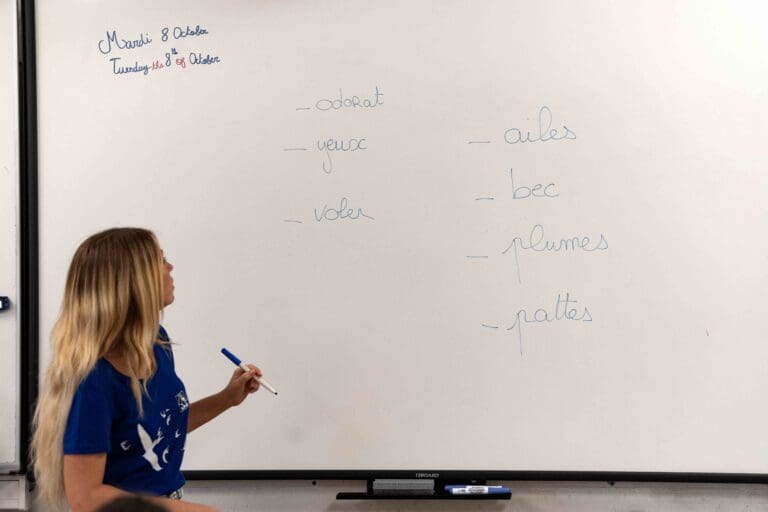 Mardi 8 October
Tuesday the 8th of October
- odorat
- yeux
- voler
- ailes
- bec
- plumes
- pattes